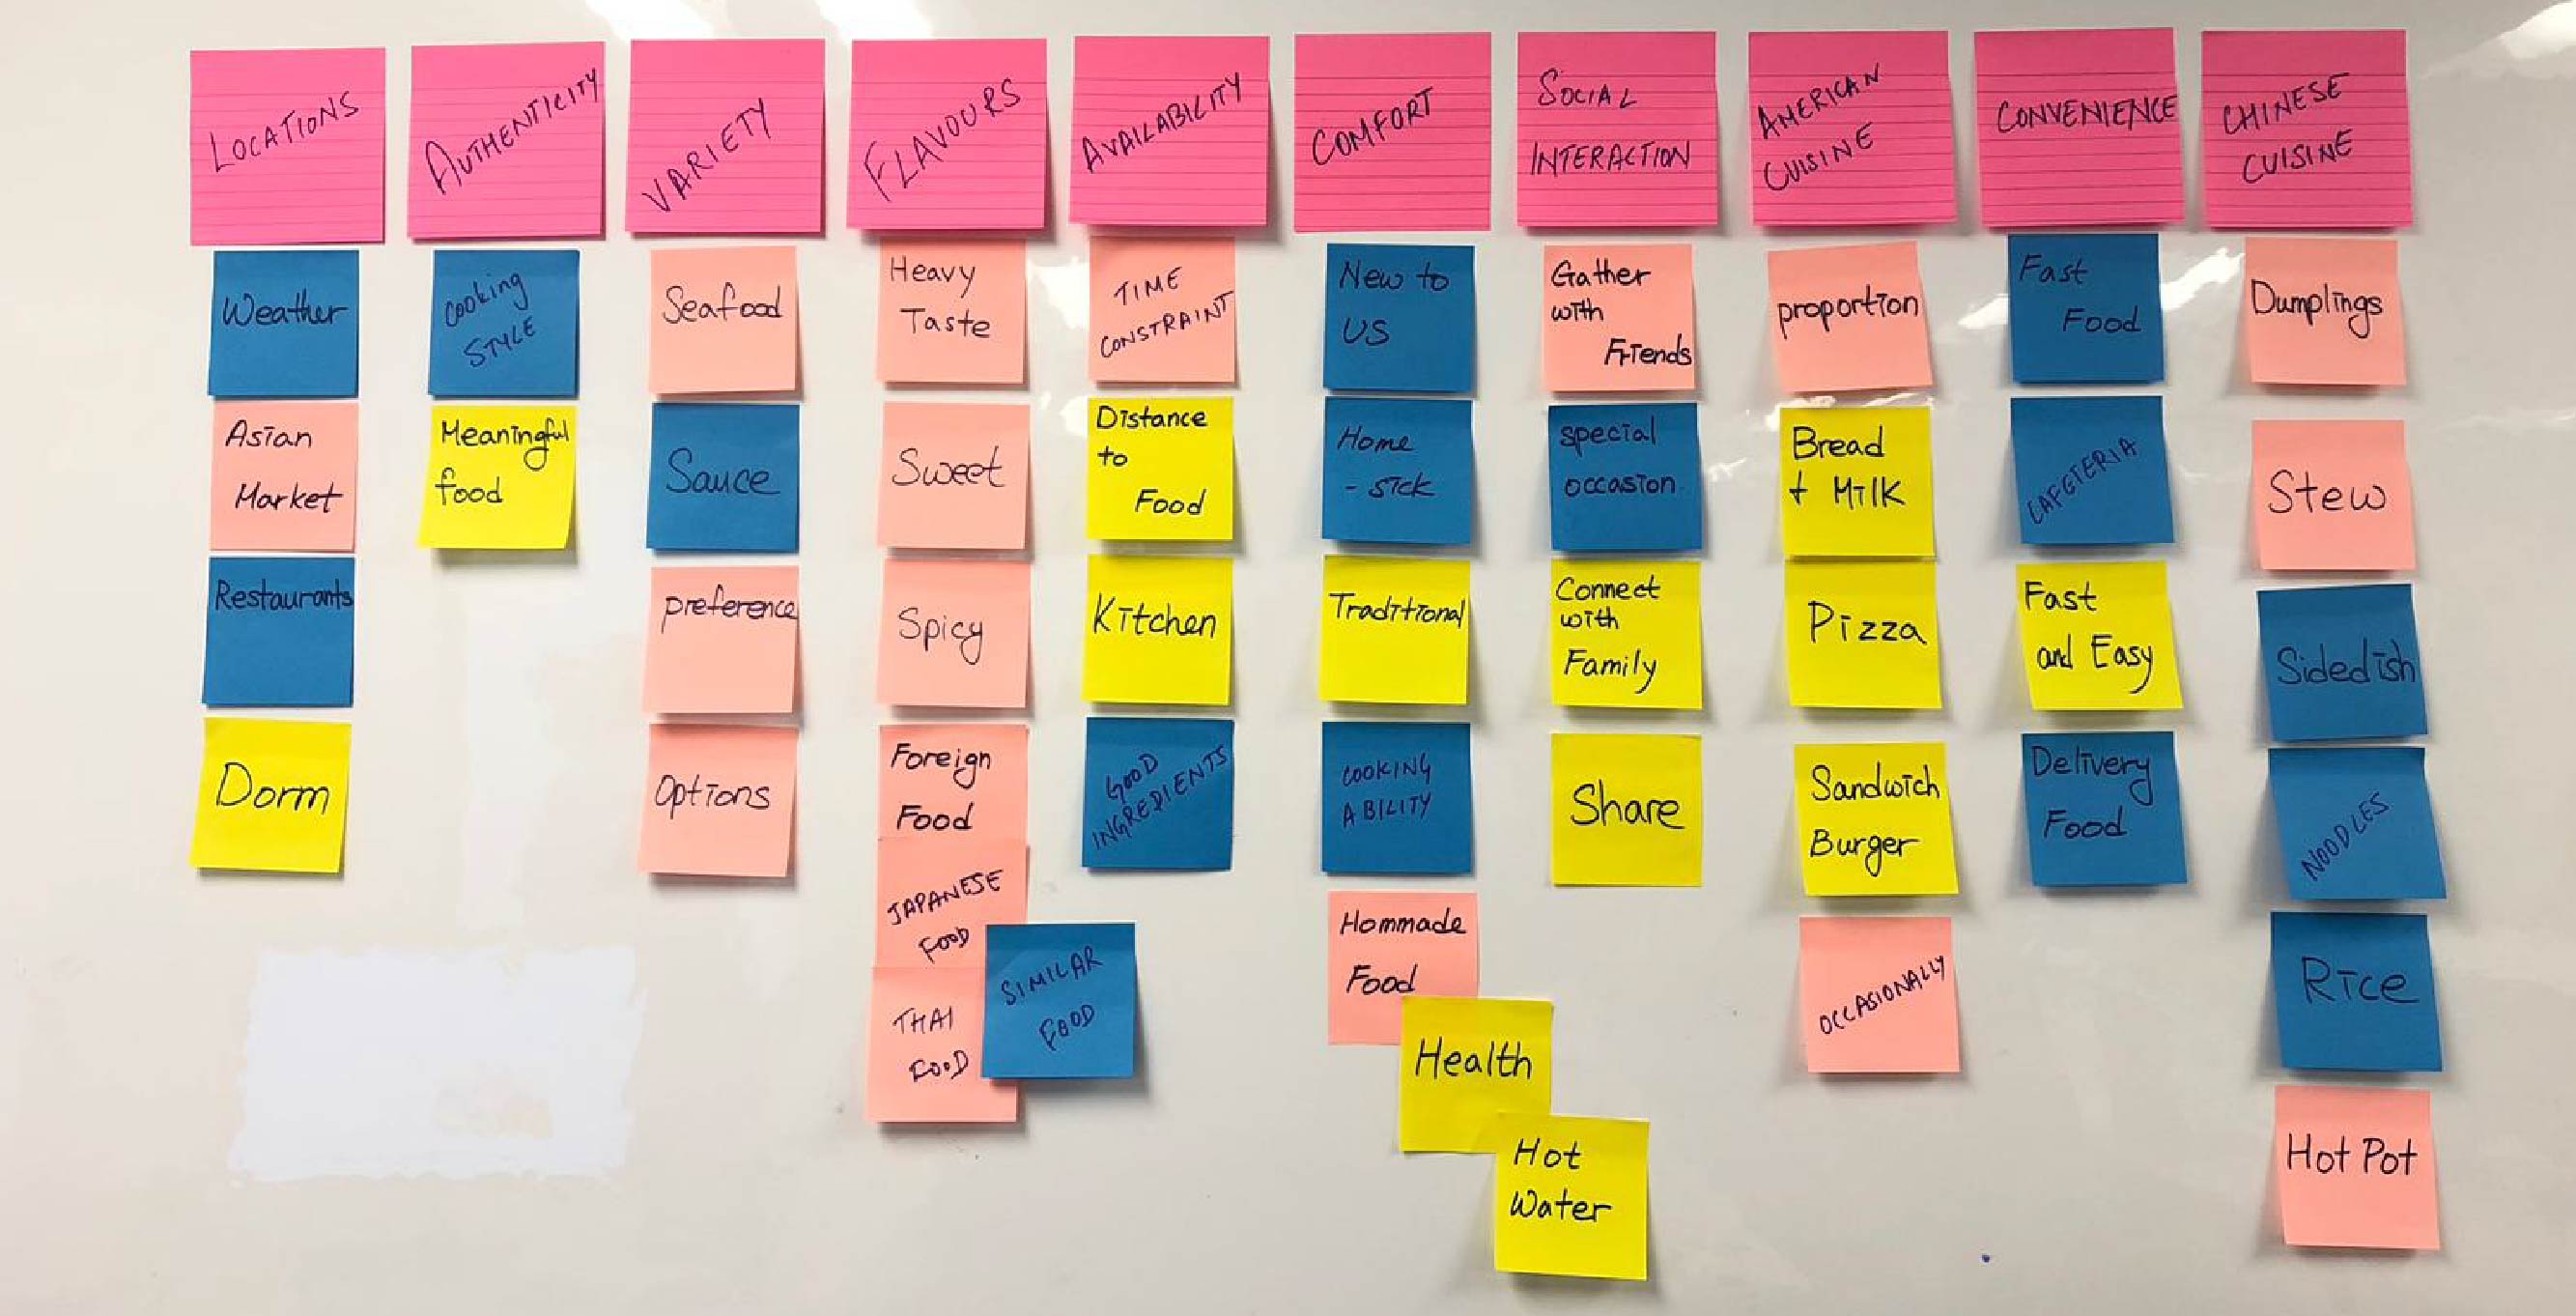 LOCATIONS
Weather
Asian
Market
Restaurants
Dorm
AUTHENTICITY
Cooking
STYLE
Meaningful
food
VARIETY
Seafood
Sauce
preference
Options
FLAVOURS
Heavy
Taste
Sweet
Spicy
Foreign
Food
JAPANESE
FOOD
THAI
FOOD
SIMILAR
FOOD
AVAILABILITY
TIME
CONSTRAINT
Distance
to
Food
Kitchen
GOOD
INGREDIENTS
COMFORT
New to
US
Home
- sick
Traditional
COOKING
ABILITY
Hommade
Food
Health
Hot
Water
SOCIAL
INTERACTION
Gather
with
Friends
special
occasion
Connect
with
Family
Share
AMERICAN
CUISINE
proportion
Bread
+ Milk
Pizza
Sandwich
Burger
OCCASIONALLY
CONVENIENCE
Fast
Food
CAFETERIA
Fast
and Easy
Delivery
Food
CHINESE
CUISINE
Dumplings
Stew
Sidedish
NOODLES
Rice
Hot Pot